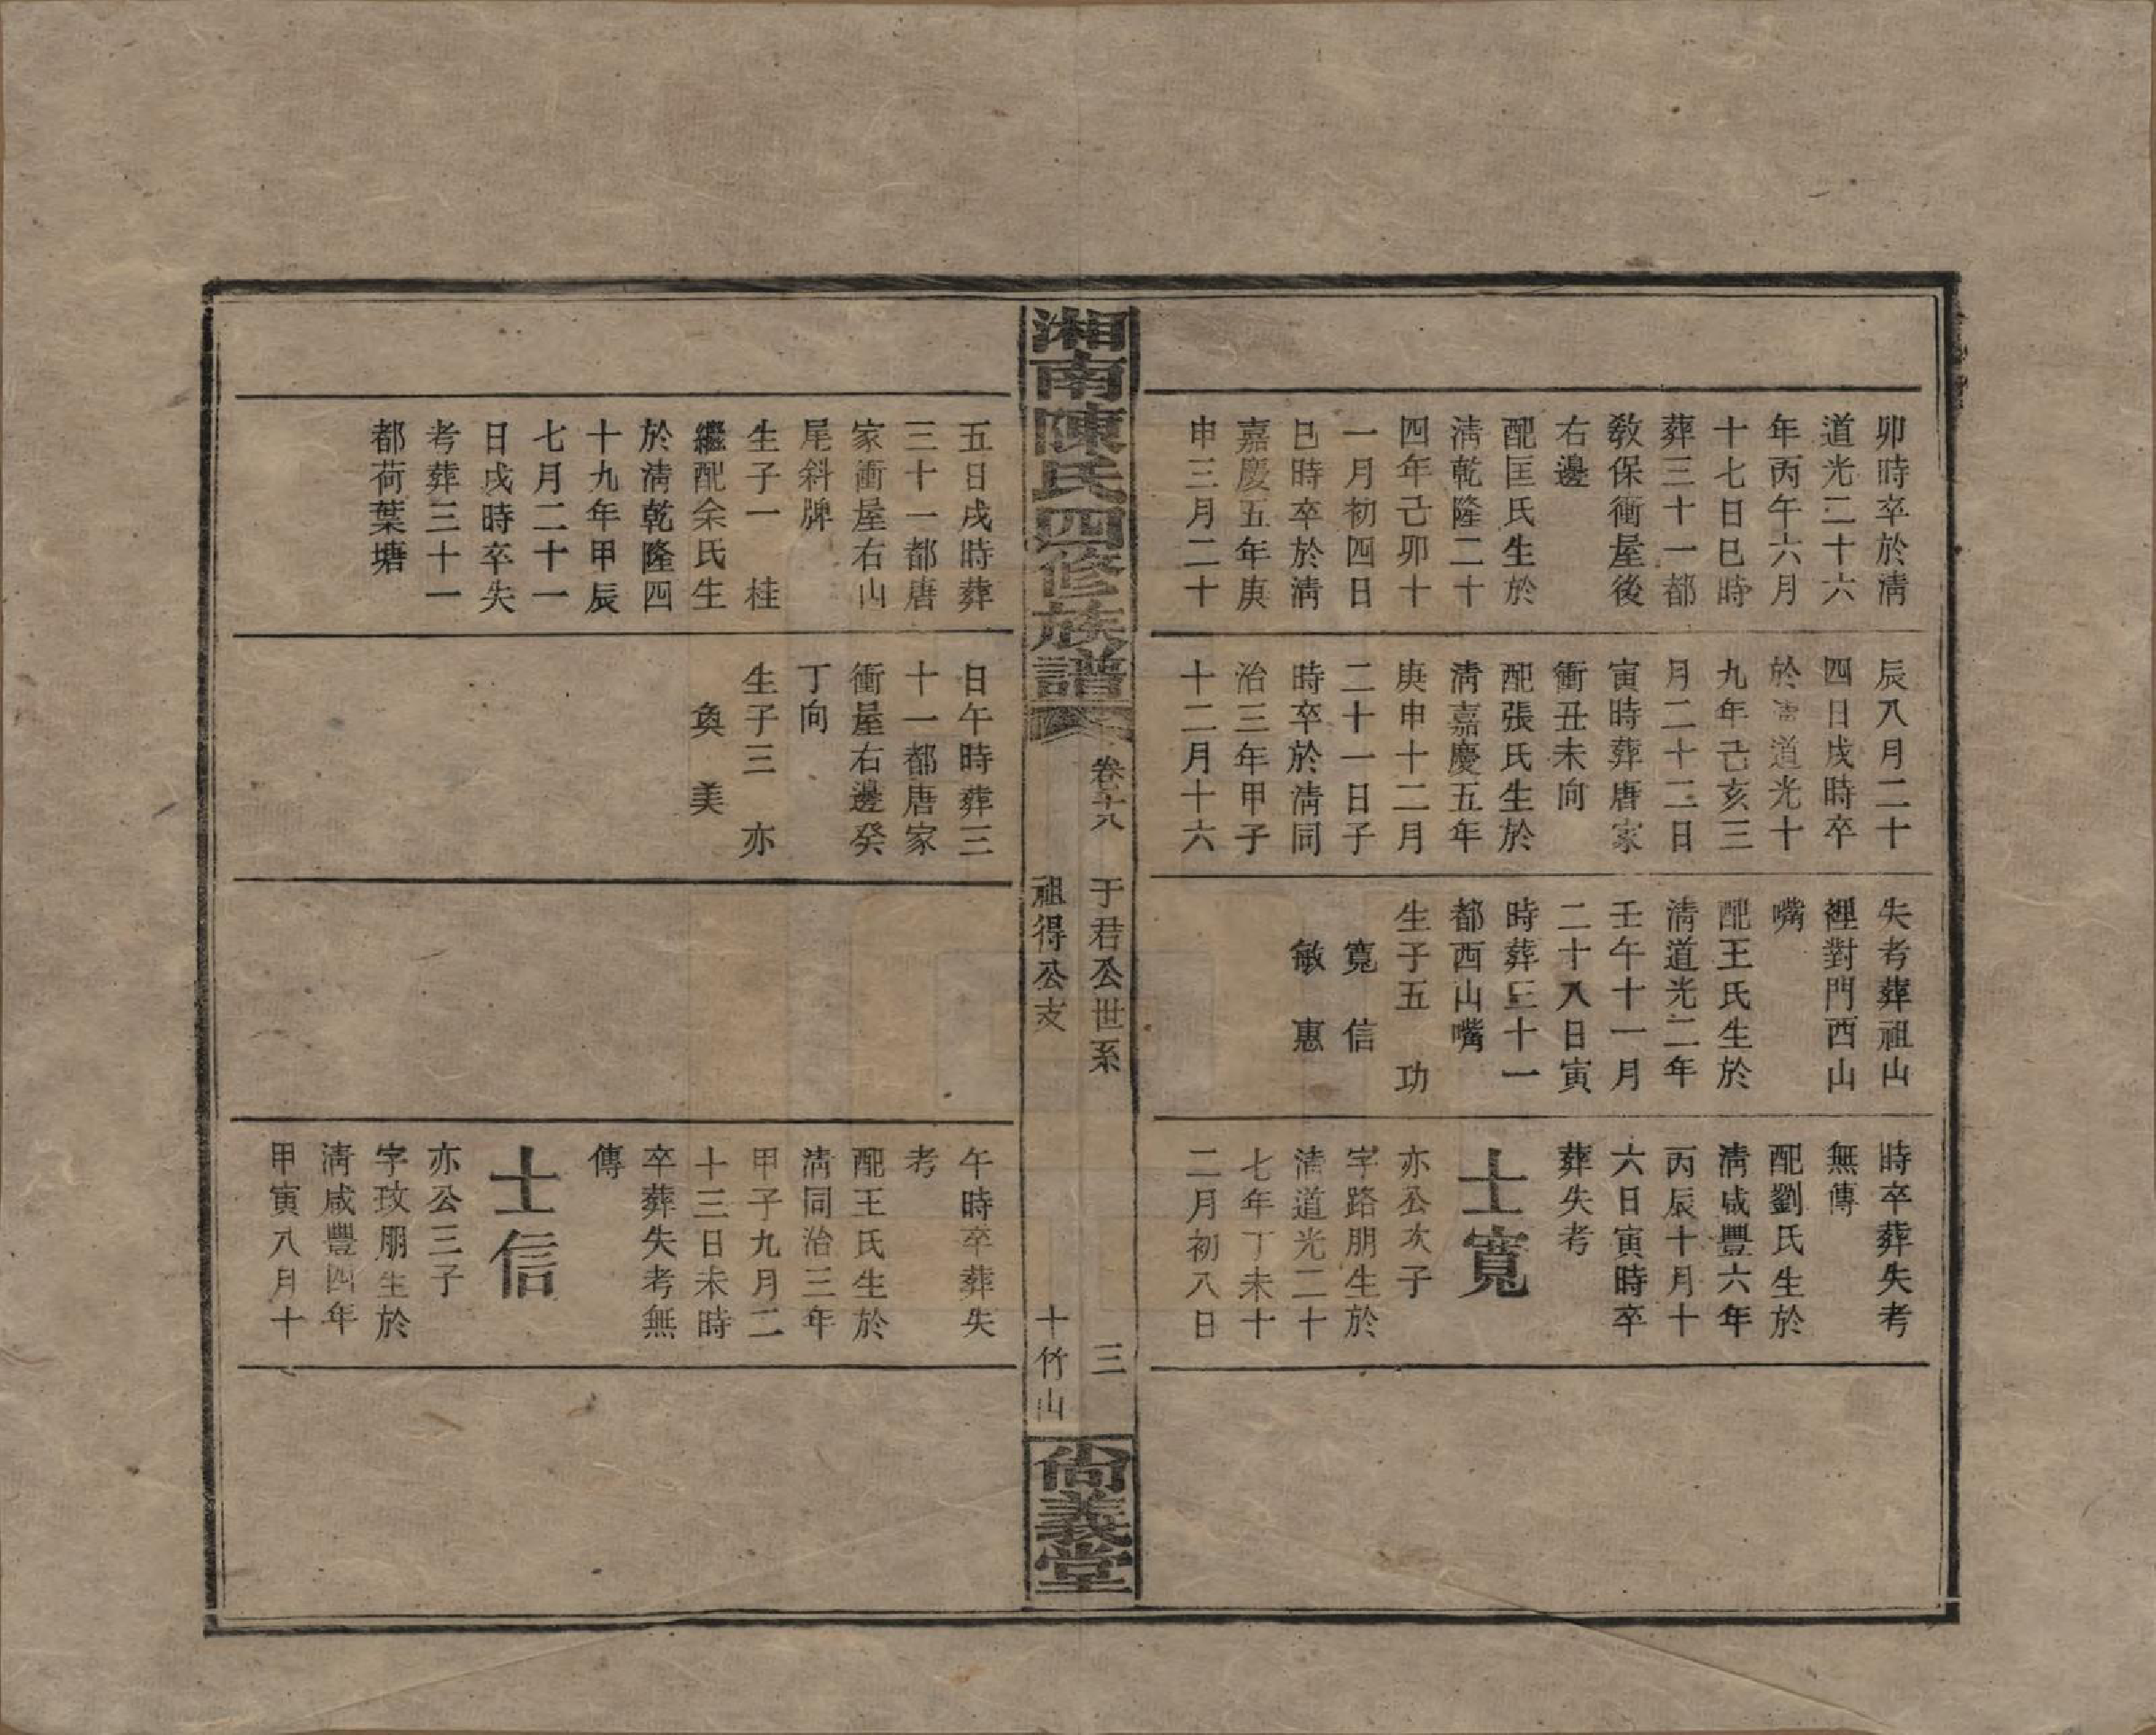 卯時卒於淸
道光二十六
年丙午六月
十七日巳時
葬三十一都
敎保衝屋後
右邊
配匡氏生於
淸乾隆二十
四年己卯十
一月初四日
巳時卒於淸
嘉慶五年庚
申三月二十
辰八月二十
四日戌時卒
於淸道光十
九年己亥三
月二十二日
寅時葬唐家
衝丑未向
配張氏生於
淸嘉慶五年
庚申十二月
二十一日子
時卒於淸同
治三年甲子
十二月十六
失考葬祖山
裡對門西山
嘴
配王氏生於
淸道光二年
壬午十一月
二十八日寅
時葬三十一
都西山嘴
生子五 功
寬 信
敏 惠
時卒葬失考
無傳
配劉氏生於
淸咸豐六年
丙辰十月十
六日寅時卒
葬失考
士寬
亦公次子
字路朋生於
淸道光二十
七年丁未十
二月初八日
湘南陳氏四修族譜
卷十八
于君公世系
三
祖得公支
十竹山
尙義堂
五日戌時葬
三十一都唐
家衝屋右山
尾斜牌
生子一 桂
繼配余氏生
於淸乾隆四
十九年甲辰
七月二十一
日戌時卒失
考葬三十一
都荷葉塘
日午時葬三
十一都唐家
衝屋右邊癸
丁向
生子三 亦
奐 美
午時卒葬失
考
配王氏生於
淸同治三年
甲子九月二
十三日未時
卒葬失考無
傳
士信
亦公三子
字玟朋生於
淸咸豐四年
甲寅八月十